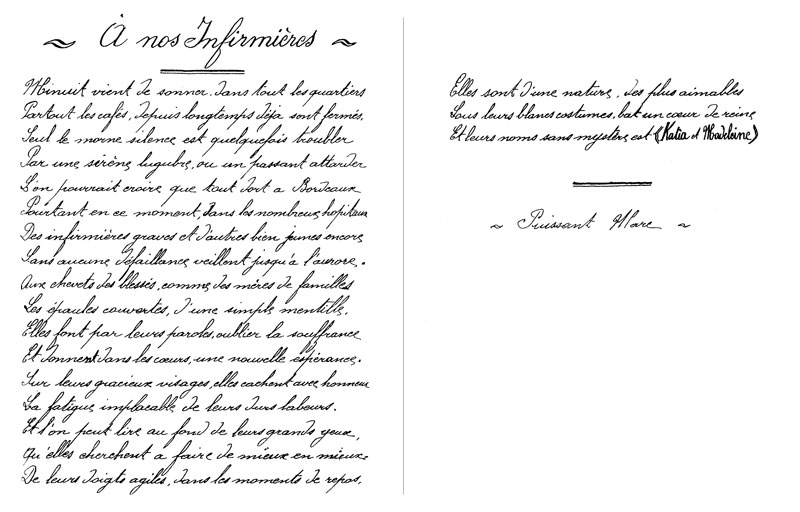 ~ À nos Infirmières ~
Minuit vient de sonner, dans tout les quartiers
Partout les cafés, depuis longtemps déja sont fermés.
Seul le morne silence est quelquefois troubler
Par une sirène lugubre, ou un passant attarder
L'on pourrait croire que tout dort a Bordeaux
Pourtant en ce moment, dans les nombreux hopitaux
Des infirmières graves et d'autres bien jeunes encore
Sans aucune défaillance veillent jusqu'à l'aurore.
Aux chevets des blessés, comme des mères de familles
Les épaules couvertes, d'une simple mentille.
Elles font par leurs paroles, oublier la souffrance
Et donnent dans les cœurs, une nouvelle espérance.
Sur leurs gracieux visages, elles cachent avec honneur
La fatigue implacable de leurs durs labours.
Et l'on peut lire au fond de leurs grands yeux,
Qu'elles cherchent a faire de mieux en mieux.
De leurs doigts agiles, dans les moments de repos,
Elles sont d'une nature, des plus aimables
Sous leurs blancs costumes, bat un cœur de reine
Et leurs noms sans mystère est (Katia et Madeleine)
~ Puissant Marc ~